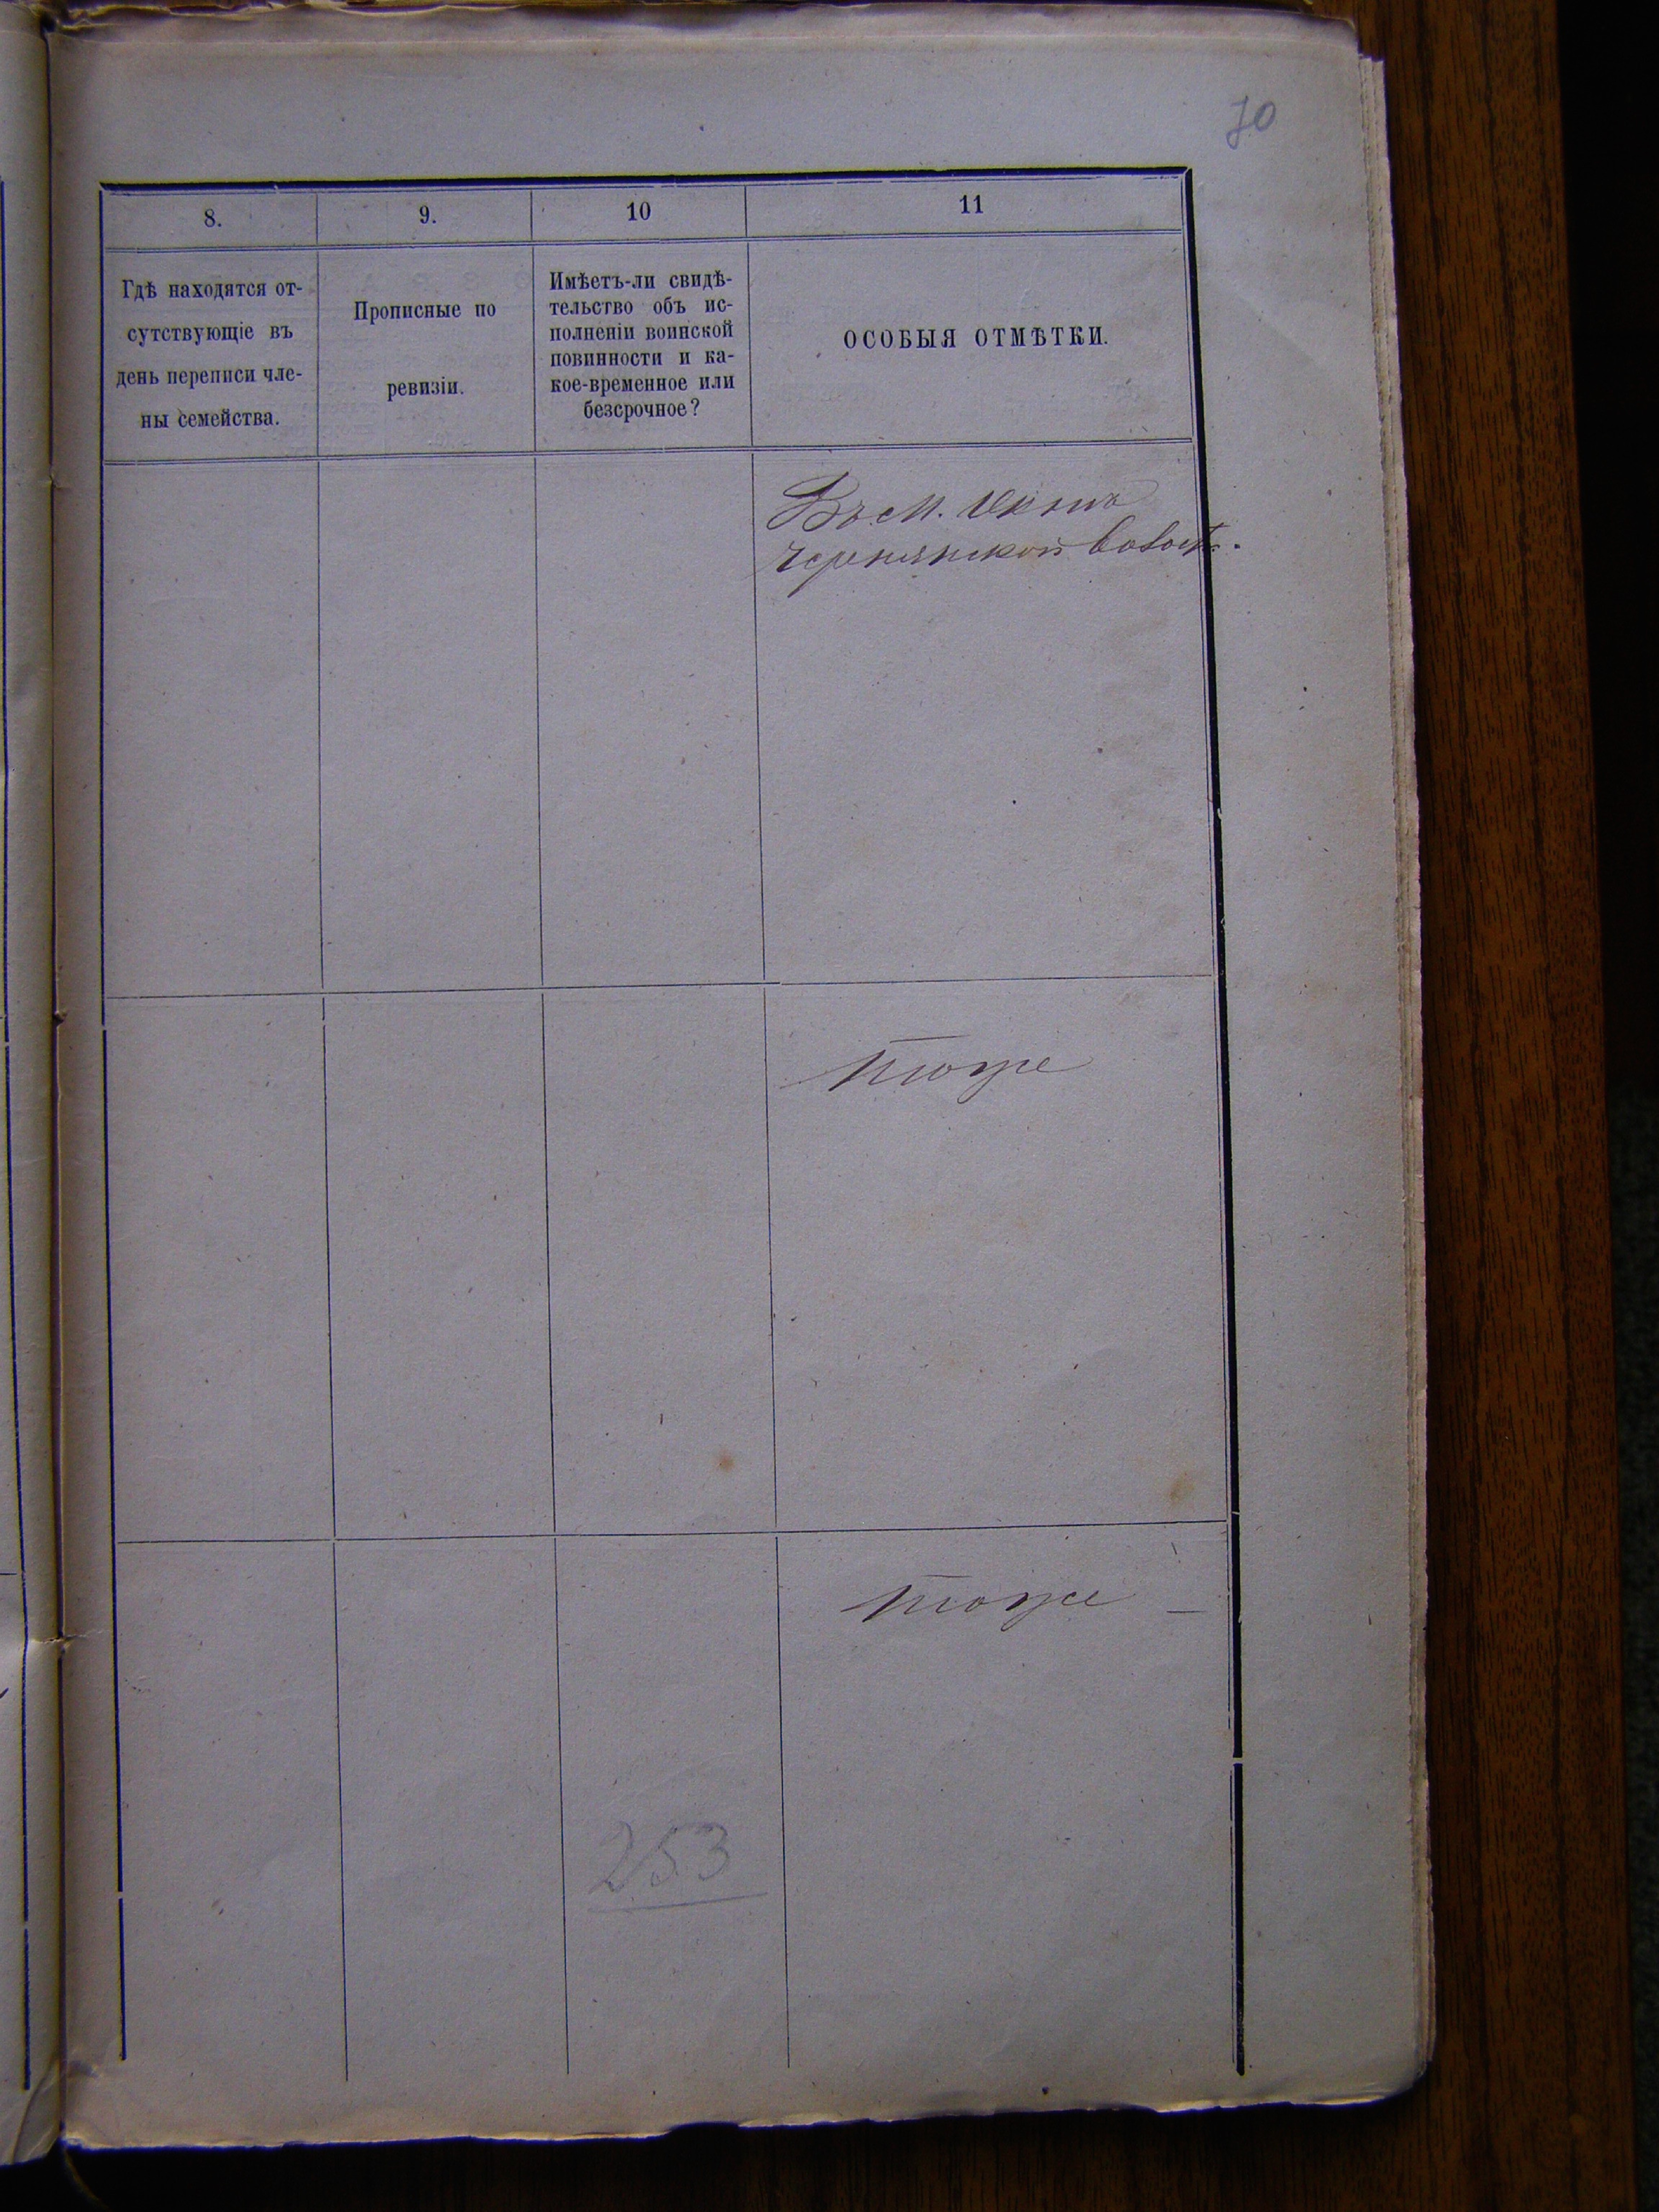 70
8.
9.
10
11
Гдѣ находятся от-
сутствующіе въ
день переписи чле-
ны семейства.
Прописные по
ревизіи.
Имѣетъ-ли свидѣ-
тельство объ ис-
полненіи воинской
повинности и ка-
кое-временное или
безсрочное?
ОСОБЫЯ ОТМѢТКИ.
Въ М.
Чернянской Волост.
тоже
тоже
253